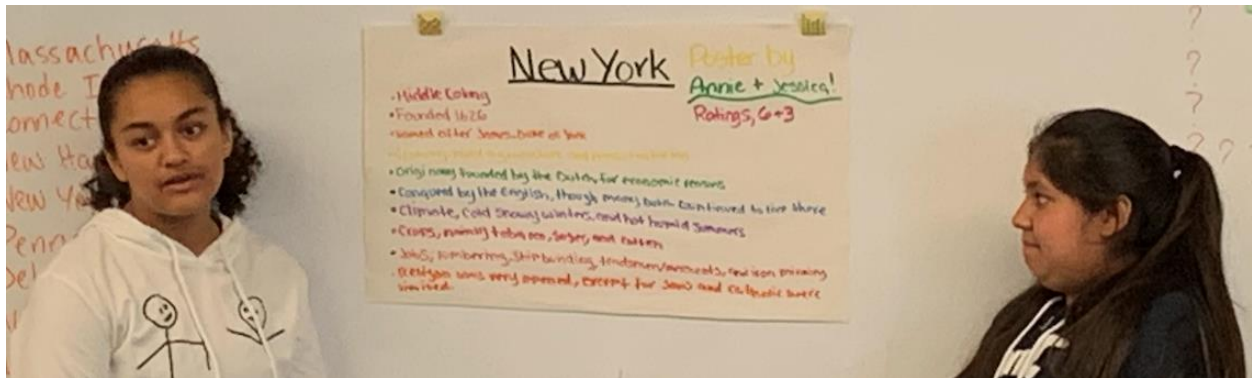 Massachusetts
hode I
onnect
ew Ha
New Y
Penn
Del
New York
Poster by
Annie + Jessica!
Ratings, 6+3
•Middle Colony
•Founded 1626
•Named after James, Duke of York
•Originally founded by the Dutch, for economic reasons
•Conquered by the English, though many Dutch continued to live there
•Climate, cold snowy winters, and hot humid summers
•Crops, mainly tobacco, sugar, and cotton
•Jobs, lumbering, shipbuilding, and iron mining
•Religion was very opened, except for Jews and Catholic were
limited.
?
?
?
? ?